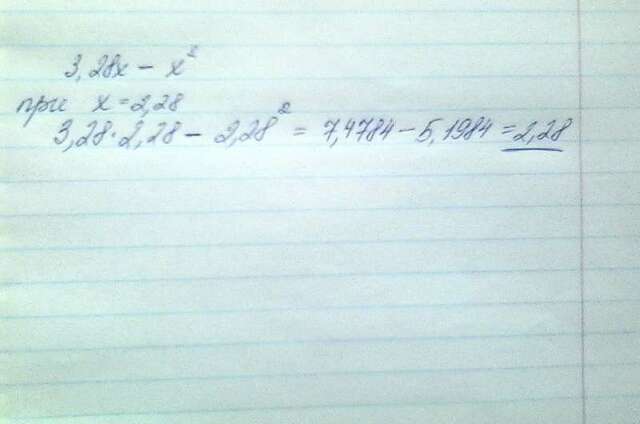 3,28x - x²
при x = 2,28
3,28·2,28 - 2,28² = 7,4784 - 5,1984 = 2,28